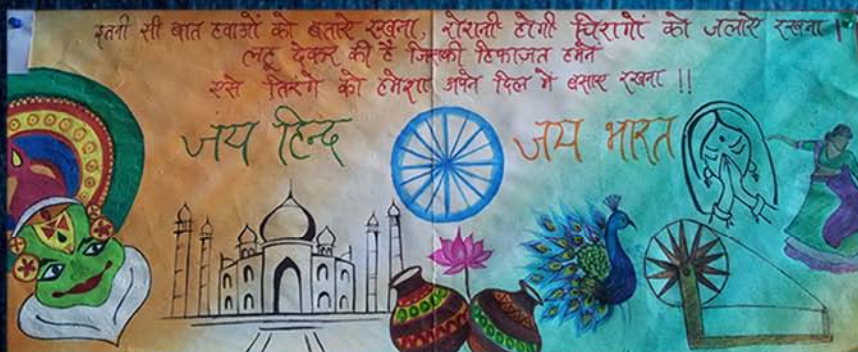 इतनी सी बात हवाओं को बताये रखना, रोशनी होगी चिरागों को जलाये रखना।
लहू देकर की है जिसकी हिफाजत हमने
ऐसे तिरंगे को हमेशा अपने दिल में बसाए रखना !!
जय हिन्द जय भारत